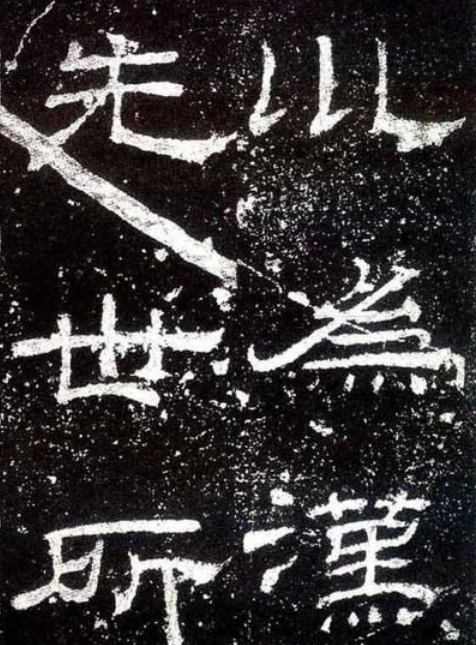 川為漢
先世所